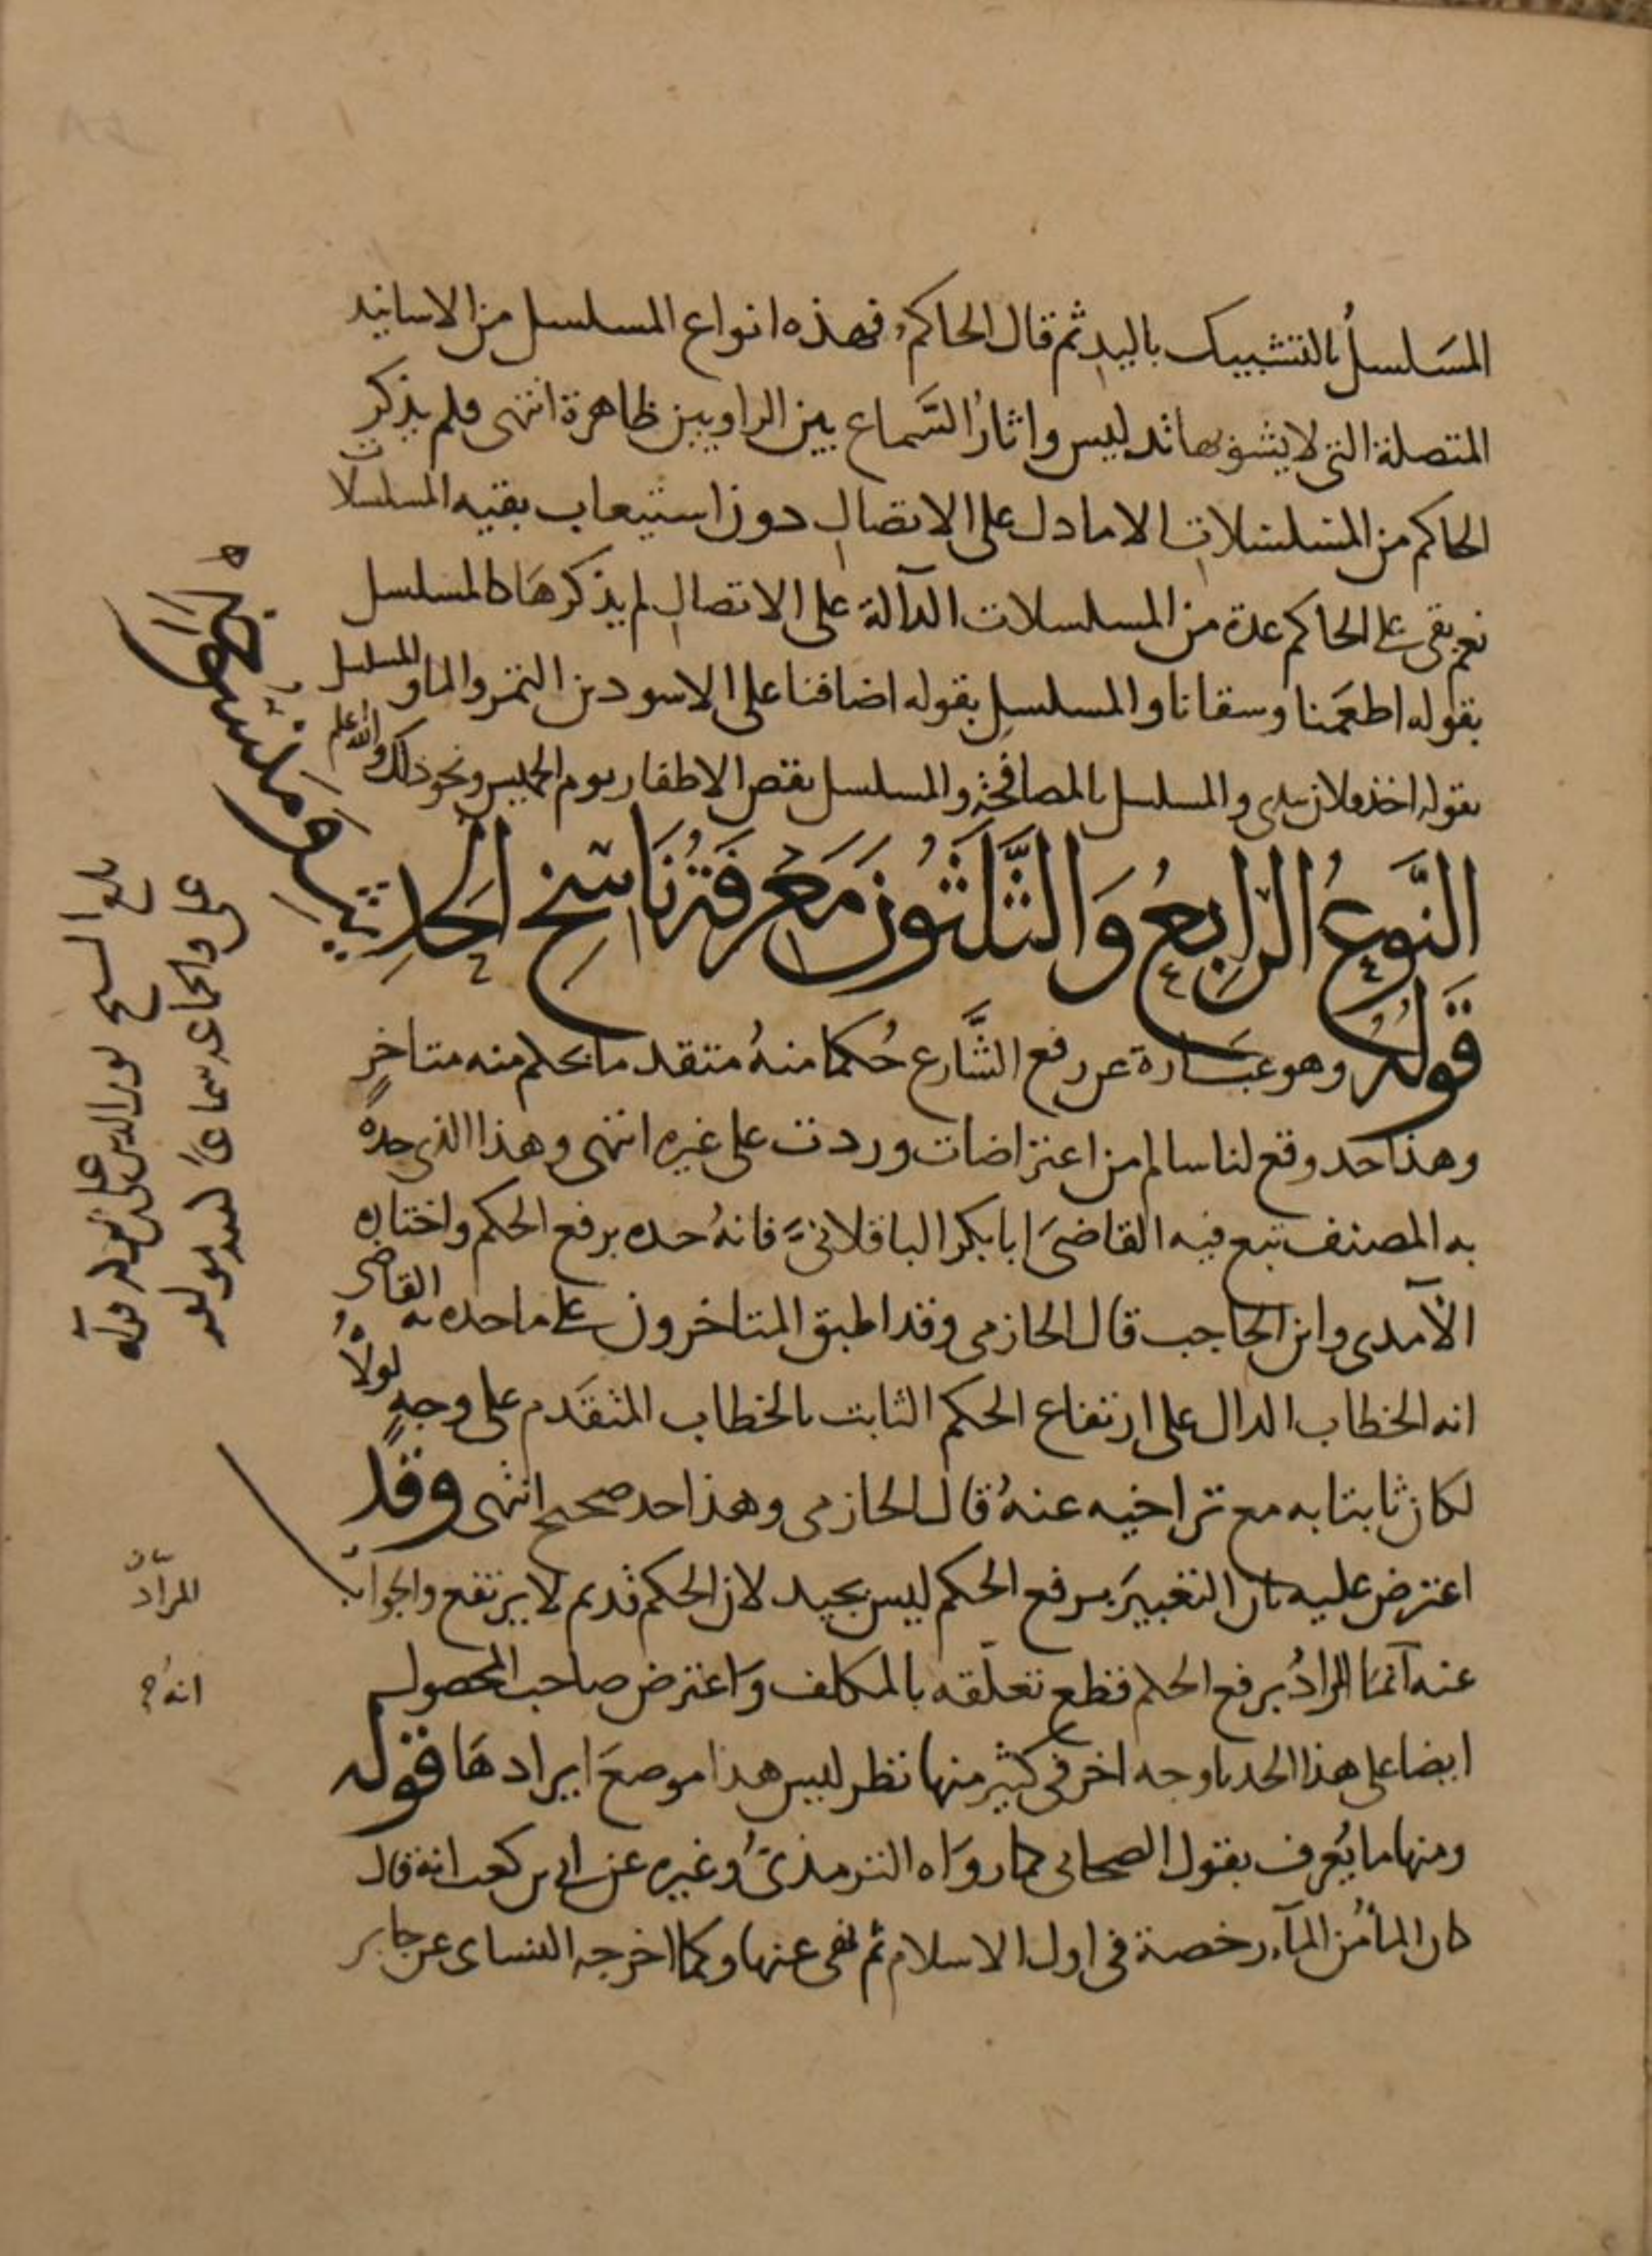 المسَلسلُ بالتشبيك باليدِ ثم قال الحاكم فهذه انواع المسلسل من الاسانيد
المتصلة التى لا يشوبها تدليس واثارُ السَّماع بين الراويين ظاهرة انتهى فلم يذكر
الحاكم من المسلسلاتِ الا ما دل على الاتصالِ دون استيعاب بقيه المسلسلات
نعم بقى على الحاكم عدة من المسلسلات الدآلة على الاتصالِ لم يذكرهَا كالمسلسل
بقوله اطعَمنا وسقانا والمسلسلِ بقوله اضافنا على الاسودين التمر والما والمسلسل
بقوله اخذ فلان بيدى والمسلسل بالمصافحة والمسلسل بقص الاظفار يوم الخميس ونحو ذلك والله اعلم
النَّوعُ الرّابعُ وَالثَّلَثُونَ مَعْرِفَةُ نَاسِخِ الحَدِيثِ ومنسوخه
قَولُهُ وهو عبَارة عن رفع الشَّارع حُكما منهُ متقدما بحكم منه متاخرٍ
وهذا حد وقع لنا سالم من اعتراضات وردت على غيره انتهى وهذا الذى حده
به المصنف تبع فيه القاضىَ ابا بكر الباقلانىَّ فانهُ حده برفع الحكم واختاره
الآمدى وابن الحاجب قال الحازمى وقد اطبق المتاخرون على ما حده به القاضى
انه الخطاب الدال على ارتفاع الحكم الثابت بالخطاب المتقَدم على وجهٍ لولاهُ
لكان ثابتا به مع تراخيه عنهُ قال الحازمى وهذا حد صحيح انتهى وقد
اعترض عليه بان التعبيرَ برفع الحكم ليس بجيد لان الحكم قديم لا يرتفع والجواب
عنه آنمَا المرادُ برفع الحكم قطع تعلّقه بالمكلف وَاعترض صاحب المحصول
ايضا على هذا الحد باوجه اخر فى كثير منها نظر ليس هذا موضعَ ايرادهَا قوله
ومنها ما يُعرف بقول الصحابى كما روَاه الترمذىُّ وغيره عن ابى بن كعب انهُ قال
كان المأُ من المآءِ رخصة فى اول الاسلام ثم نهى عنها وكما اخرجه النساى عن جابر
بلغ الشيخ نور الدين على
على والجماعه سماعًا
المرادُ
انهُ